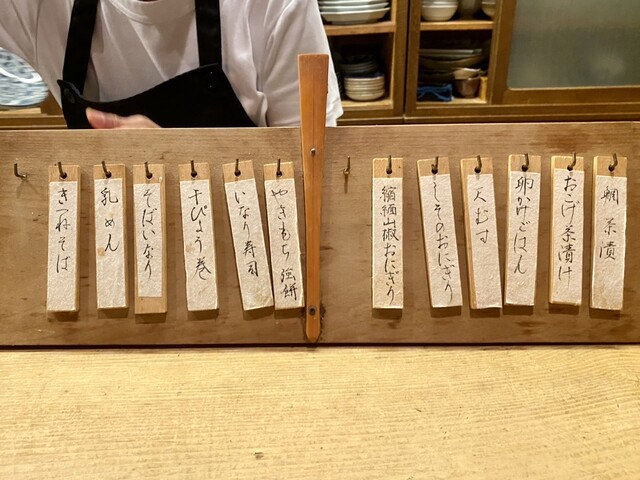 鯛茶漬
おこげ茶漬け
卵かけごはん
天むす
しそのおにぎり
縮緬山椒おにぎり
やきもち
いなり寿司
干ぴょう巻
そばいなり
乳めん
きつねそば